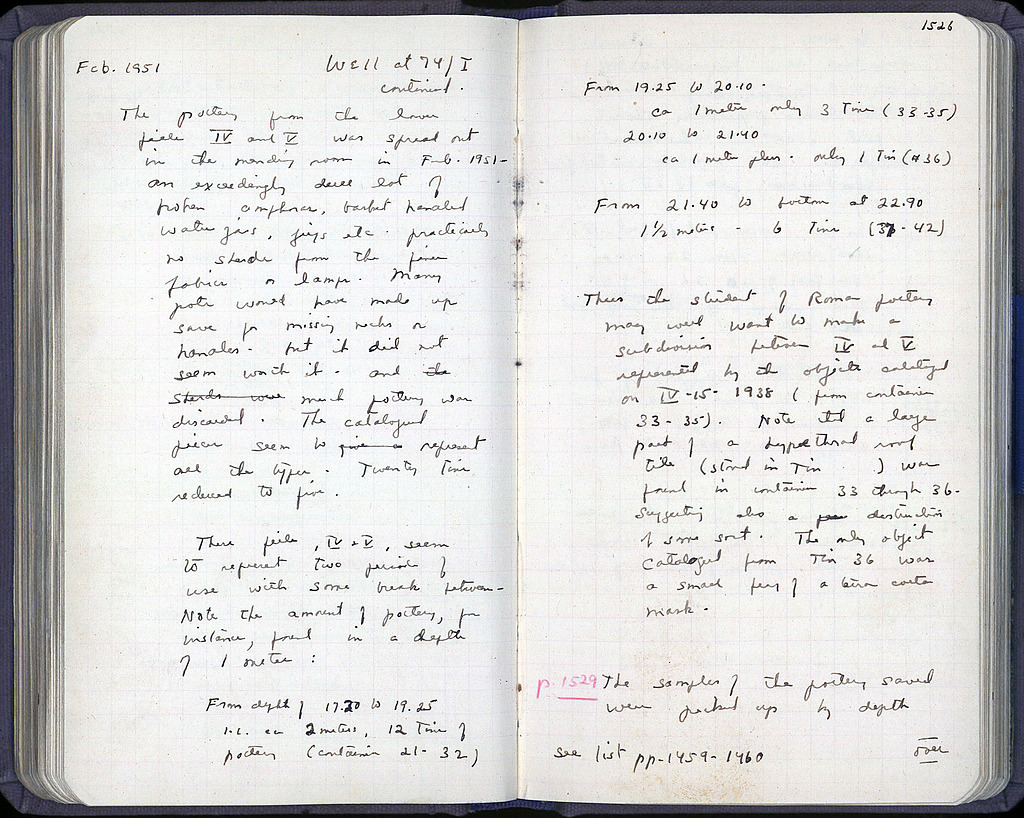 Feb. 1951
Well at 74/I
continued.
The pottery from the lower
fills IV and V was spread out
in the mending room in Feb. 1951 -
an exceedingly dull lot of
broken amphoras, basket handled
water jars, jugs etc. practically
no sherds from the finer
fabrics or lamps. Many
pots would have made up
save for missing necks or
handles. but it did not
seem worth it. and the
sherds were much pottery was
discarded. The catalogued
pieces seem to give a represent
all the types. Twenty tins
reduced to five.
These fills, IV & V, seem
to represent two periods of
use with some break between -
Note the amount of pottery, for
instance, found in a depth
of 1 meter :
From depth of 17.20 to 19.25
i.e. ca 2 meters, 12 Tins of
pottery (container 21- 32)
1526
From 19.25 to 20.10 -
ca 1 meter only 3 Tins (33-35)
20.10 to 21.40
ca 1 meter plus. only 1 Tin (#36)
From 21.40 to bottom at 22.90
1 1/2 meters - 6 Tins (37- 42)
Thus the student of Roman pottery
may well want to make a
subdivision between IV and V
represented by the objects cataloged
on IV-15- 1938 (from container
33- 35). Note that a large
part of a hypaethral roof
tile (stored in Tin ) was
found in container 33 through 36-
suggesting also a destruction
of some sort. The only object
cataloged from Tin 36 was
a small frag of a terra cotta
mask.
p. 1529 The samples of the pottery saved
were packed up by depth
see list pp-1459-1460
over